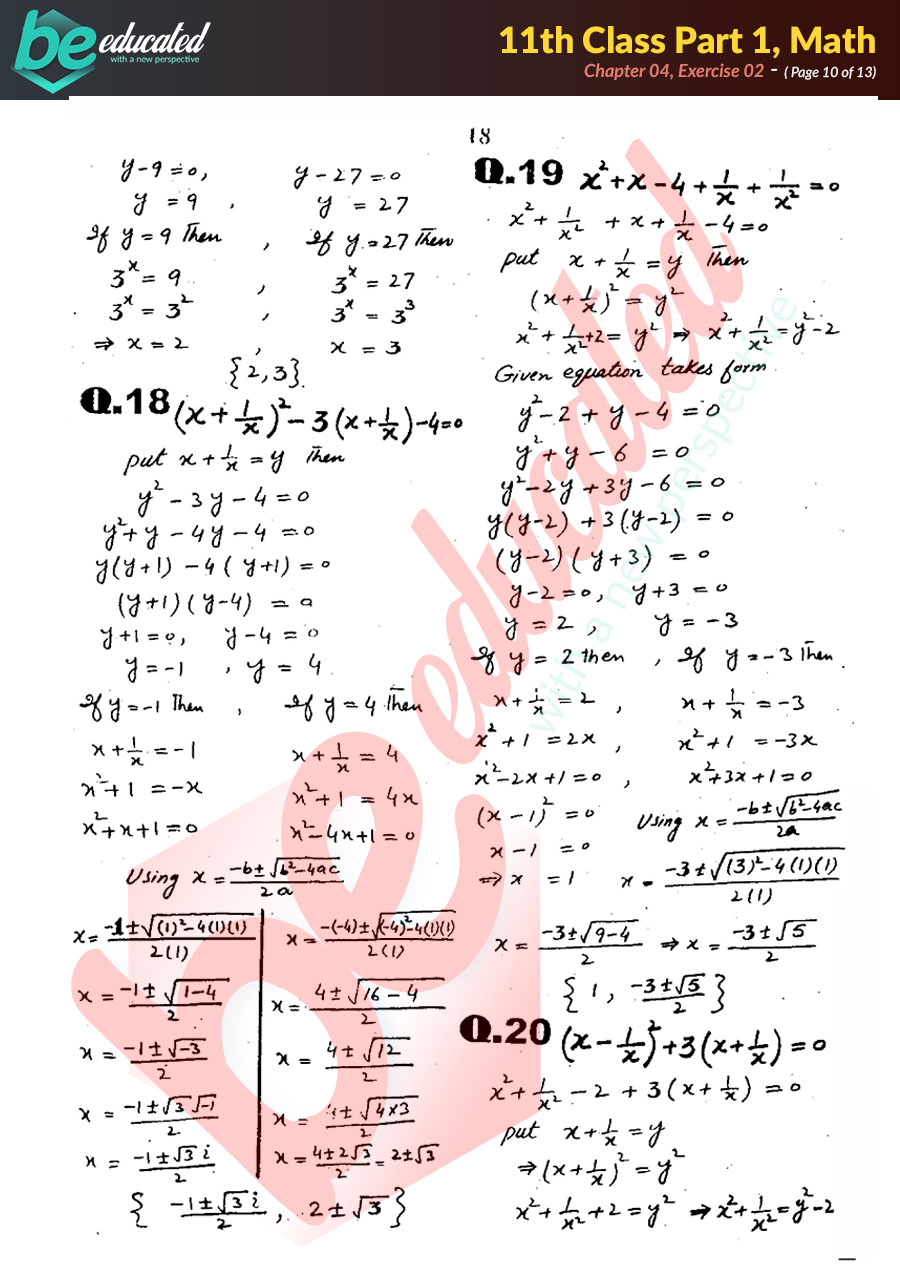 be educated
with a new perspective
11th Class Part 1, Math
Chapter 04, Exercise 02 - ( Page 10 of 13)
18
y-9=0, y-27=0
y = 9 , y = 27
If y=9 Then , If y=27 Then
3ˣ = 9 , 3ˣ = 27
3ˣ = 3² , 3ˣ = 3³
⇒ x = 2 , x = 3
{2,3}.
Q.18 (x+1/x)²-3(x+1/x)-4=0
put x+1/x = y Then
y²-3y-4=0
y²+y-4y-4=0
y(y+1)-4(y+1)=0
(y+1)(y-4) = 0
y+1=0, y-4=0
y=-1 , y=4
If y=-1 Then , If y=4 Then
x+1/x=-1 x+1/x=4
x²+1=-x x²+1=4x
x²+x+1=0 x²-4x+1=0
Using x=(-b±√(b²-4ac))/2a
x=(-1±√((1)²-4(1)(1)))/2(1) x=(-(-4)±√((-4)²-4(1)(1)))/2(1)
x=(-1±√(1-4))/2 x=(4±√(16-4))/2
x=(-1±√-3)/2 x=(4±√12)/2
x=(-1±√3 √-1)/2 x=(4±√(4×3))/2
x=(-1±√3 i)/2 x=(4±2√3)/2=2±√3
{ (-1±√3 i)/2 , 2±√3 }
Q.19 x²+x-4+1/x+1/x²=0
x²+1/x²+x+1/x-4=0
put x+1/x=y Then
(x+1/x)²=y²
x²+1/x²+2=y² ⇒ x²+1/x²=y²-2
Given equation takes form.
y²-2+y-4=0
y²+y-6=0
y²-2y+3y-6=0
y(y-2)+3(y-2)=0
(y-2)(y+3)=0
y-2=0, y+3=0
y=2 , y=-3
If y=2 then , If y=-3 Then.
x+1/x=2 , x+1/x=-3
x²+1=2x , x²+1=-3x
x²-2x+1=0 , x²+3x+1=0
(x-1)²=0 Using x=(-b±√(b²-4ac))/2a
x-1=0
⇒ x=1 x=(-3±√((3)²-4(1)(1)))/2(1)
x=(-3±√(9-4))/2 ⇒ x=(-3±√5)/2
{ 1, (-3±√5)/2 }
Q.20 (x-1/x)²+3(x+1/x)=0
x²+1/x²-2+3(x+1/x)=0
put x+1/x=y
⇒(x+1/x)²=y²
x²+1/x²+2=y² ⇒ x²+1/x²=y²-2
be educated
with a new perspective